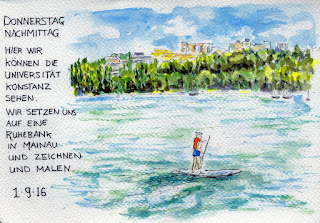 DONNERSTAG
NACHMITTAG
HIER WIR
KÖNNEN DIE
UNIVERSITÄT
KONSTANZ
SEHEN.
WIR SETZEN UNS
AUF EINE
RUHEBANK
IN MAINAU
UND ZEICHNEN
UND MALEN
1.9.16